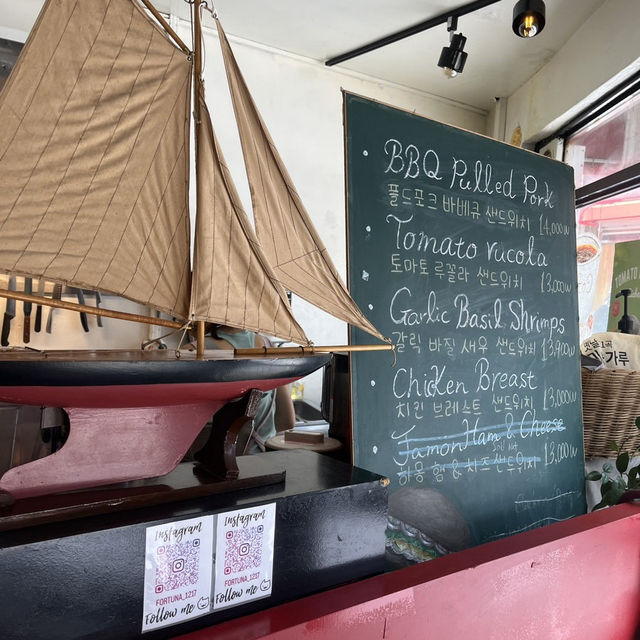 BBQ Pulled Pork
풀드포크 바베큐 샌드위치 14,000₩
Tomato rucola
토마토 루꼴라 샌드위치 13,000₩
Garlic Basil Shrimps
갈릭 바질 새우 샌드위치 13,900₩
Chicken Breast
치킨 브레스트 샌드위치 13,000₩
Jamon Ham & Cheese
Sold out
하몽 햄 & 치즈 샌드위치 13,000₩
TOMATO
가루
Instagram
FORTUNA_1217
Follow me
Instagram
FORTUNA_1217
Follow me